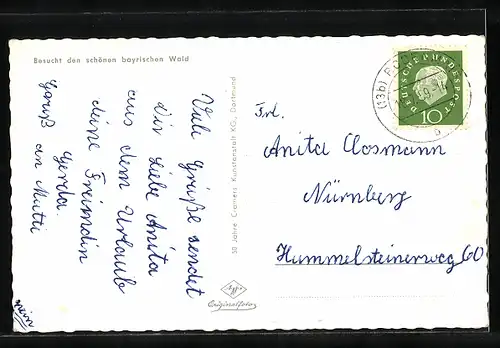 Besucht den schönen bayrischen Wald
Viele Grüße sendet
Dir liebe Anita
aus dem Urlaub
deine Freundin
Gerda
Gruß
an Mutti
30 Jahre Cramers Kunstanstalt KG., Dortmund
Agfa
Originalfoto
(13b)
DEUTSCHE BUNDESPOST
10
b
Frl.
Anita Closmann
Nürnberg
Hummelsteinerweg 60